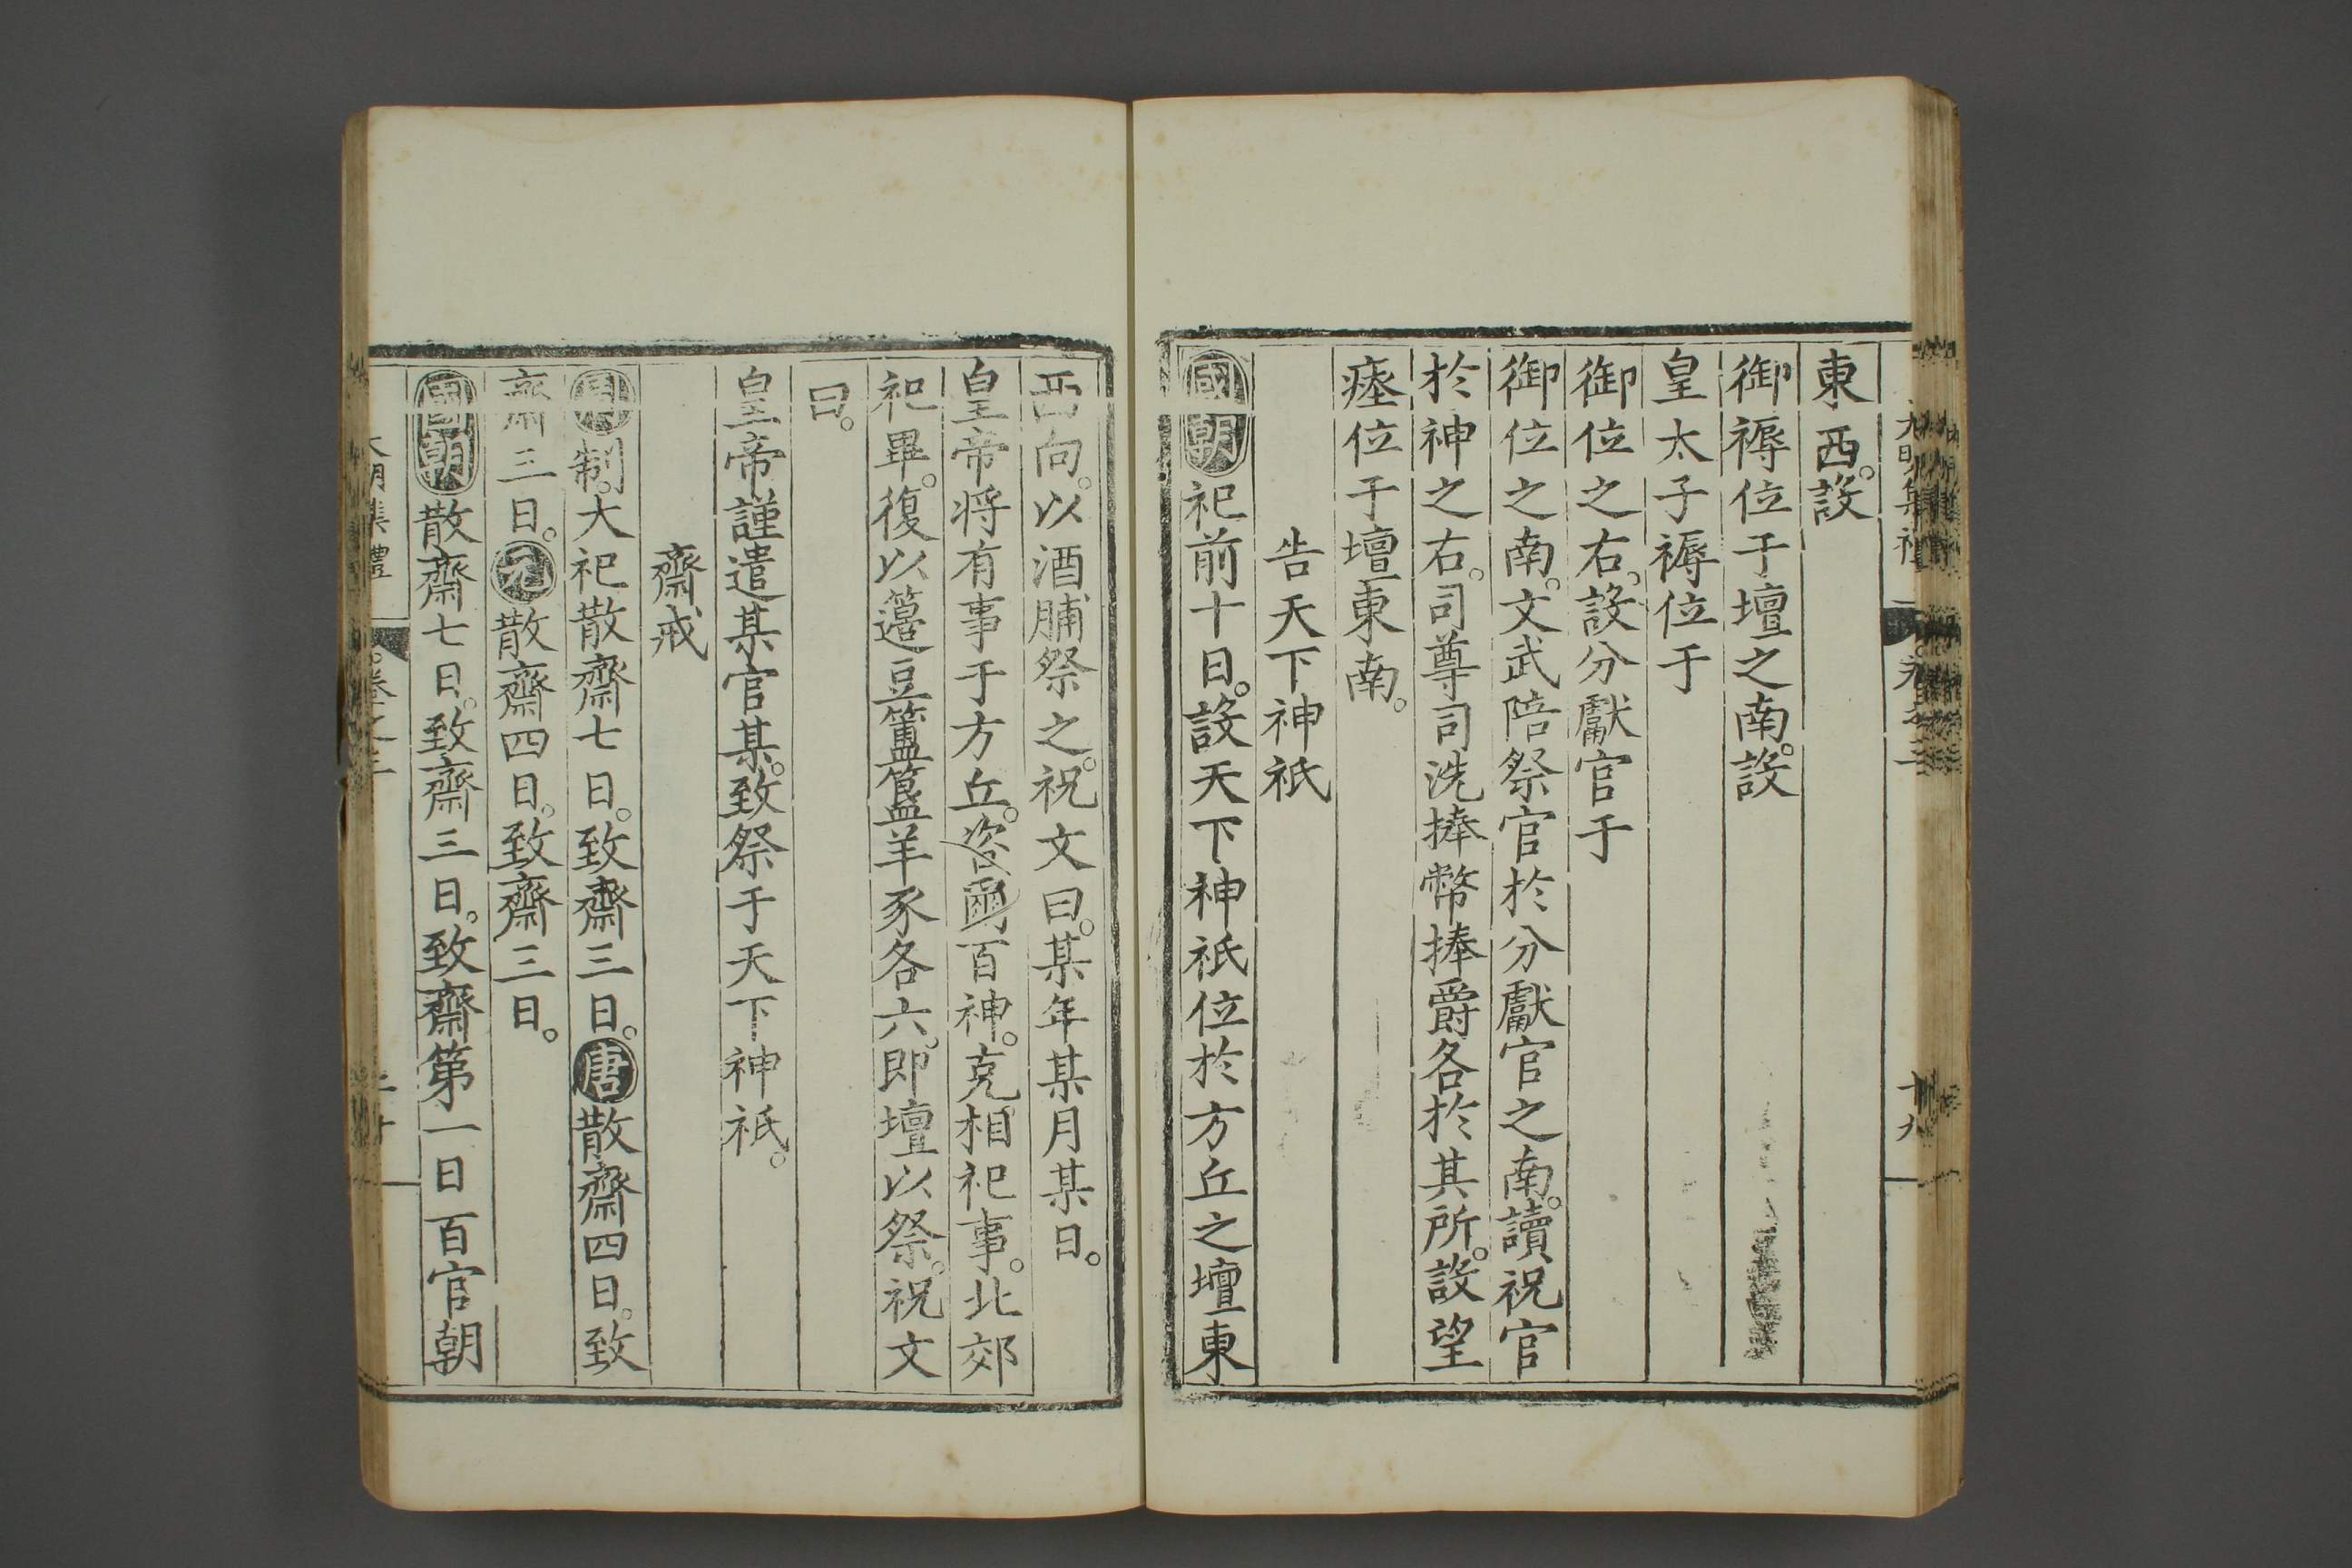 東西。設
御褥位于壇之南。設
皇太子褥位于
御位之右。設分獻官于
御位之南。文武陪祭官於分獻官之南。讀祝官
於神之右。司尊司洗捧幣捧爵各於其所。設望
瘞位于壇東南。
告天下神祇
國朝祀前十日。設天下神祇位於方丘之壇東
西向。以酒脯祭之。祝文曰。某年某月某日。
皇帝将有事于方丘。咨爾百神。克相祀事。北郊
祀畢。復以籩豆簠簋羊豕各六。即壇以祭。祝文
曰。
皇帝謹遣某官某。致祭于天下神祇。
齋戒
周制。大祀散齋七日。致齋三日。唐散齋四日。致
齋三日。元散齋四日。致齋三日。
國朝散齋七日。致齋三日。致齋第一日百官朝